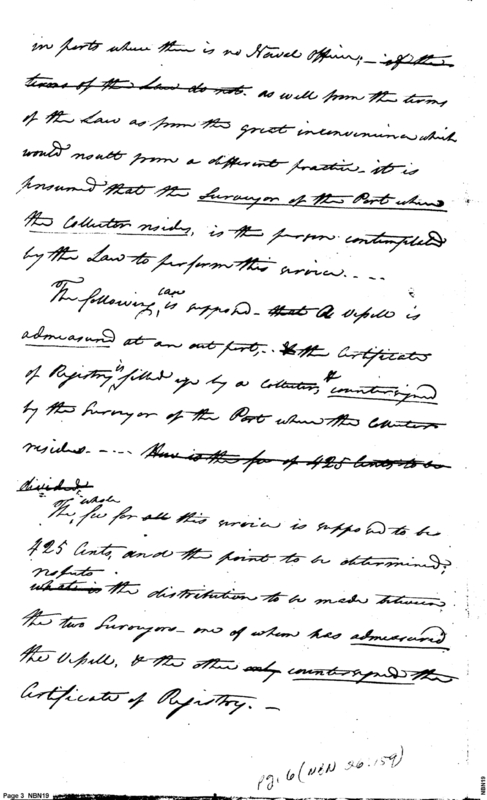 in ports where there is no Naval Officer;— of the
terms of the Law do not. as well from the terms
of the Law as from the great inconvenience which
would result from a different practice— it is
presumed that the Surveyor of the Port where
the Collector resides, is the person contemplated
by the Law to perform this service.....
case
The following is supposed— that A Vessel is
admeasured at an out port,—. the Certificate
of Registry is filled up by a Collector, & countersigned
by the Surveyor of the Port where the Collector
resides.—... How is the fee of 425 Cents to be
divided
whole
The fee for all this service is supposed to be
425 Cents, and the point to be determined,
respects
what is the distribution to be made between
the two Surveyors— one of whom has admeasured
the Vessel, & the other only countersigned the
Certificate of Registry.—
pg. 6 (NBN 26:159)
Page 3 NBN19
NBN19